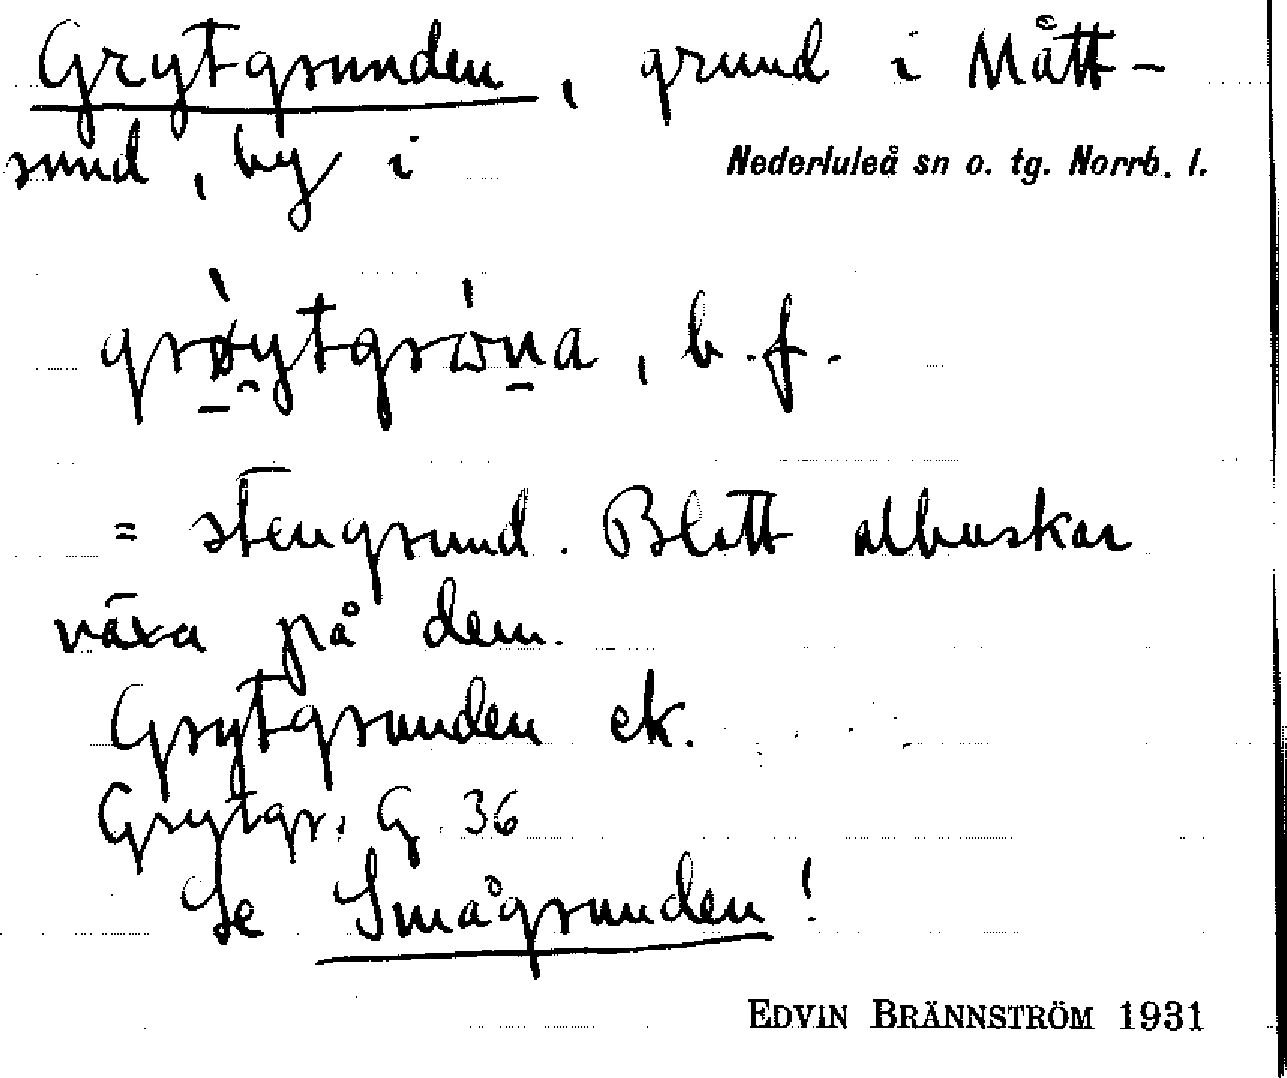 Grytgrunden, grund i Mått-
sund, by i Nederluleå sn o. tg. Norrb. l.
grøytgröna, b.f.
= stengrund. Blott albuskar
växa på dem.
Grytgrunden ek.
Grytgr. G 36
Se Smågrunden!
EDVIN BRÄNNSTRÖM 1931